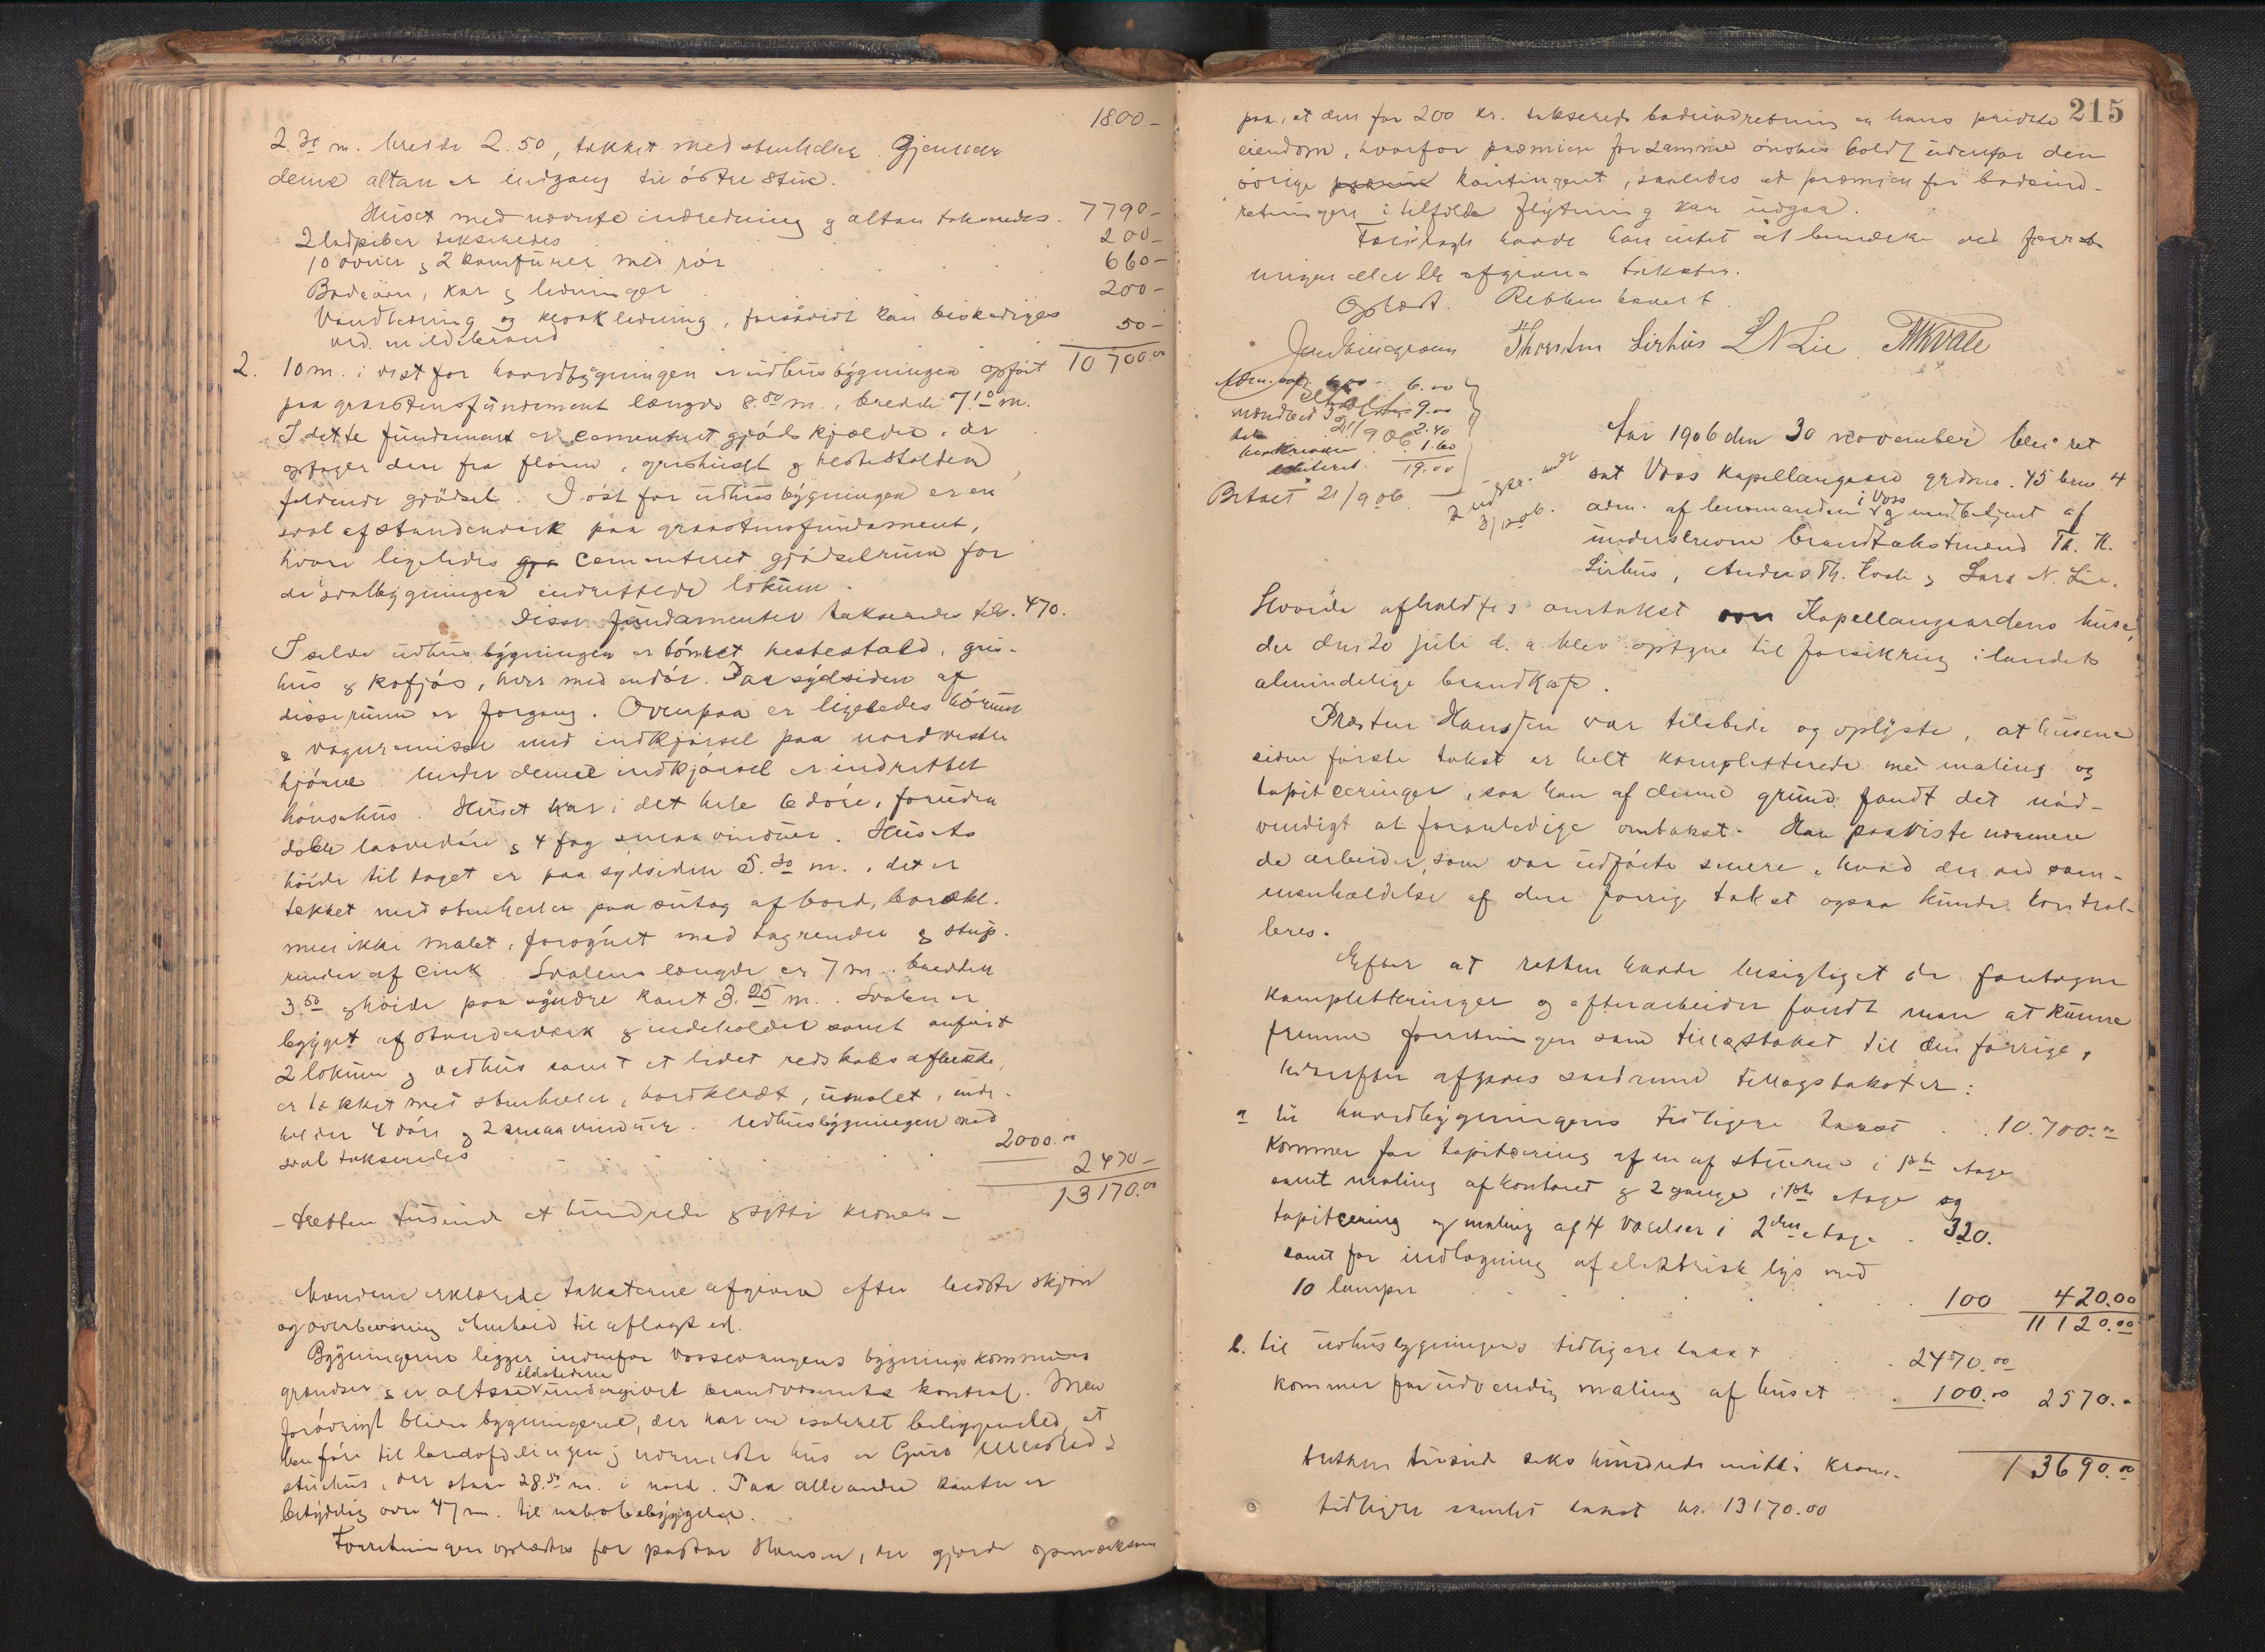 1800-
2.30 m. bredde 2.50, tækket med stenheller. Gjennem
denne altan er indgang til østre stue.
Huset med nævnte indredning og altan takseredes. 7790-
2 ladpiber takseredes 200-
10 ovner & 2 komfurer med rør 660-
Badeovn, kar & ledninger 200-
Vandledning og kloakledning, forsåvidt kan beskadiges
ved ildebrand 50-
10 700.00
2. 10 m. i vest for hovedbygningen er udhusbygningen opført
paa graastensfundament længde 8.80 m., bredde 7.10 m.
I dette fundament er cementeret gjødselkjælder, der
optager den fra floren, grishuset & hestestalden
faldende gjødsel. I øst for udhusbygningen er en
sval af standerværk paa graastensfundament,
hvori ligeledes gjø cementeret gjødselrum for
de i svalbygningen indrettede lokum.
Disse fundamenter takseredes til kr. 470.
I selve udhusbygningen er tømret hestestald, gris-
hus & kofjøs, hver med en dør. Paa sydsiden af
disse rum er forgang. Ovenpaa er ligeledes hørum
& vognremisse med indkjørsel paa nordvestre
hjørne. Under denne indkjørsel er indrettet
hønsehus. Huset har i det hele 6 døre, foruden
doble laavedøre & 4 fag smaa vinduer. Husets
høide til taget er paa sydsiden 5.30 m., det er
tækket med stenheller paa sutag af bord, bordkl.
men ikke malet, forsynet med tagrender & stup-
render af cink. Svalens længde er 7 m. bredden
3.50 & høide paa søndre kant 3.25 m. Svalen er
bygget af standerværk & indeholder som anført
2 lokum & vedhus samt et lidet redskabsaflukke,
er tækket med stenheller, bordklædt, umalet, inde-
holder 4 døre & 2 smaa vinduer. Udhusbygningen med
sval takseredes 2000.00
2470-
13170.00
- tretten tusinde et hundrede & sytti kroner -
Mændene erklærede taksterne afgivne efter bedste skjøn
og overbevisning i henhold til aflagt ed.
Bygningerne ligger indenfor Vossevangens bygningskommunes
grændser & er altsaa ildstederne undergivet brandvæsenets kontrol. Men
forøvrigt bliver bygningerne, der har en isoleret beliggenhed, at
henføre til landafdelingen; nærmeste hus er Guro Ullestads
stuehus, der staar 28.50 m. i nord. Paa alle andre kanter er
betydelig over 47 m. til nabobebyggelse.
Forretningen oplæstes for pastor Hansen, der gjorde opmærksom
215
paa, at den for 200 kr. takserede badeindretning er hans private
eiendom, hvorfor præmien for samme ønskes holdt udenfor den
øvrige præmie kontingent, saaledes at præmien for badeind-
retningen i tilfælde flytning kan udgaa.
Forøvrigt havde han intet at bemærke ved forret-
ningen eller de afgivne takster.
Oplæst. Retten hævet.
Thorsten Lirhus L N Lie
6.00
9.00
2.40
1.60
19.00
Betalt 21/9 06.
Aar 1906 den 30 november blev ret
sat Voss Kapellangaard grdno. 45 brno 4
adm. af lensmanden i Voss & medbetjent af
underskrevne brandtakstmænd Th. K.
Lirhus, Anders Th. Kvale & Lars N. Lie.
Hvorda afholdtes omtakst over Kapellangaardens huse,
der den 20 juli d. a. blev optagne til forsikring i landets
almindelige brandkasse.
Præsten Hansen var tilstede og oplyste, at husene
siden første takst er helt kompletterede med maling og
tapitseringer, saa han af denne grund fandt det nød-
vendigt at foranledige omtakst. Han paaviste nærmere
de arbeider, som var udførte senere, hvad der ved sam-
menholdelse af den forrige takst ogsaa kunde kontrol-
leres.
Efter at retten havde besigtiget de foretagne
kompletteringer og efterarbeider fandt man at kunne
fremme forretningen som tillægstakst til den forrige,
hvorefter afgaves saadanne tillægstakster:
a til hovedbygningens tidligere takst 10.700.00
kommer for tapitsering af en af stuerne i 1ste etage
samt maling af kontoret & 2 gange i 1ste etage og
tapitsering og maling af 4 værelser i 2den etage 320.
samt for indlægning af elektrisk lys med
10 lamper 100 420.00
11120.00
b. til udhusbygningens tidligere takst 2470.00
kommer for udvendig maling af huset 100.00 2570.00
tretten tusinde seks hundrede nitti kroner 13690.00
tidligere samlet takst kr. 13170.00